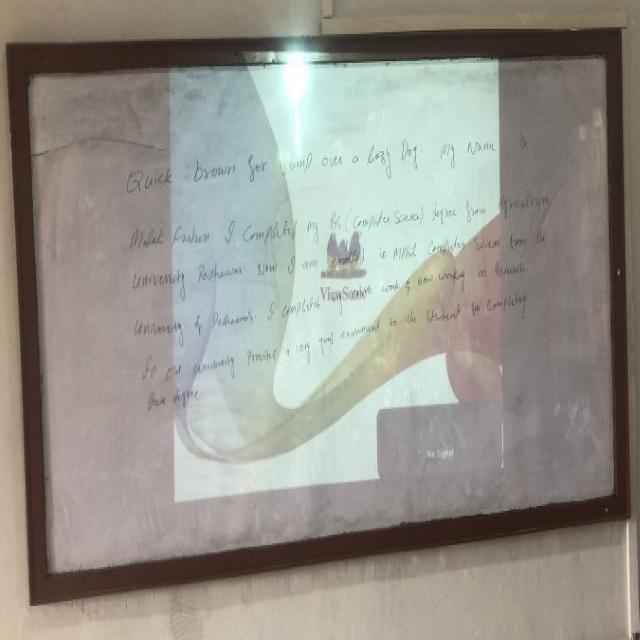 Quick brown fox Jump over a lazy Dog. My Name is
I Completed my BS (Computer Science) degree from Agriculture
University Peshawar. Now I am enrolled in MPhil Computer Science from the
University of Peshawar. I Completed my course work & Now working on Research
So our university Provide a very good environment to the Student for Completing
their degree
ViewSonic
No Signal